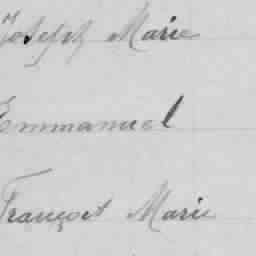 Joseph Marie
Emmanuel
François Marie